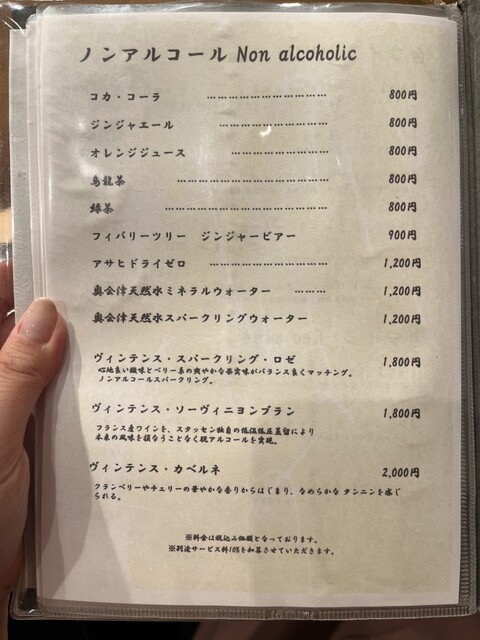 ノンアルコール Non alcoholic
コカ・コーラ ………………………… 800円
ジンジャエール ………………………… 800円
オレンジジュース ……………………… 800円
烏龍茶 ……………………………………… 800円
緑茶 ………………………………………… 800円
フィバリーツリー ジンジャービアー 900円
アサヒドライゼロ ………………………… 1,200円
奥会津天然水ミネラルウォーター ……… 1,200円
奥会津天然水スパークリングウォーター 1,200円
ヴィンテンス・スパークリング・ロゼ 1,800円
心地良い酸味とベリー系の爽やかな果実味がバランス良くマッチング。
ノンアルコールスパークリング。
ヴィンテンス・ソーヴィニヨンブラン 1,800円
フランス産ワインを、スタッセン独自の低温低圧蒸留により
本来の風味を損なうことなく脱アルコールを実現。
ヴィンテンス・カベルネ 2,000円
クランベリーやチェリーの華やかな香りからはじまり、なめらかな タンニンを感じ
られる。
※料金は税込み価額となっております。
※別途サービス料10%を加算させていただきます。